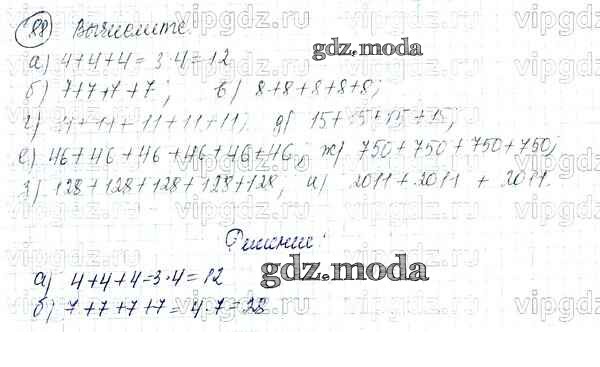 88 Вычислите.
а) 4+4+4=3·4=12
б) 7+7+7+7; в) 8+8+8+8+8;
г) 11+11+11+11+11; д) 15+15+15+15;
е) 46+46+46+46+46+46; ж) 750+750+750+750;
з) 128+128+128+128+128; и) 2011+2011+2011.
Решение:
а) 4+4+4=3·4=12
gdz.moda
б) 7+7+7+7=4·7=28
gdz.moda
vipgdz